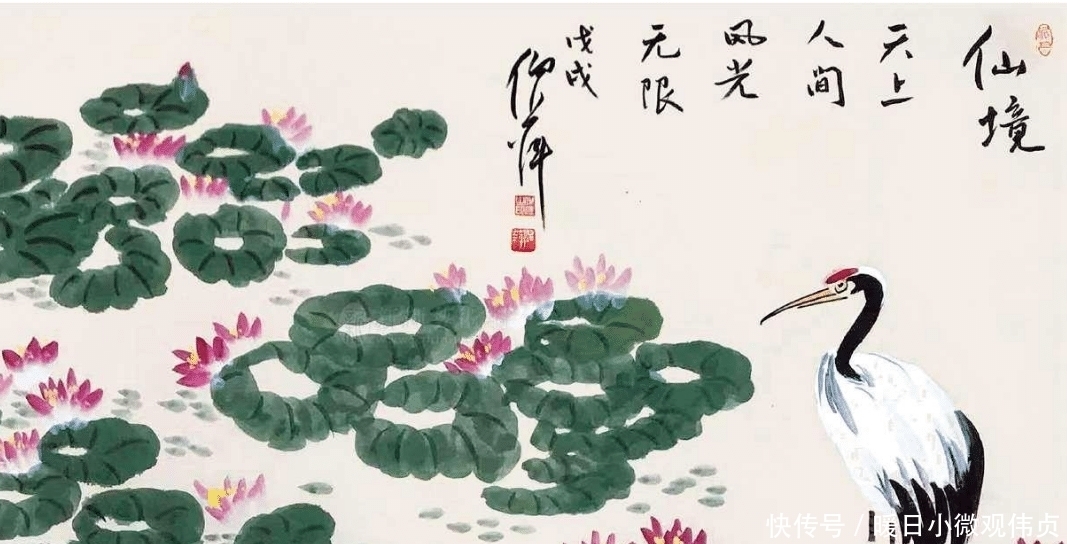 仙境
天上
人间
风光
无限
戊戌
快传号 / 暖日小微观伟贞